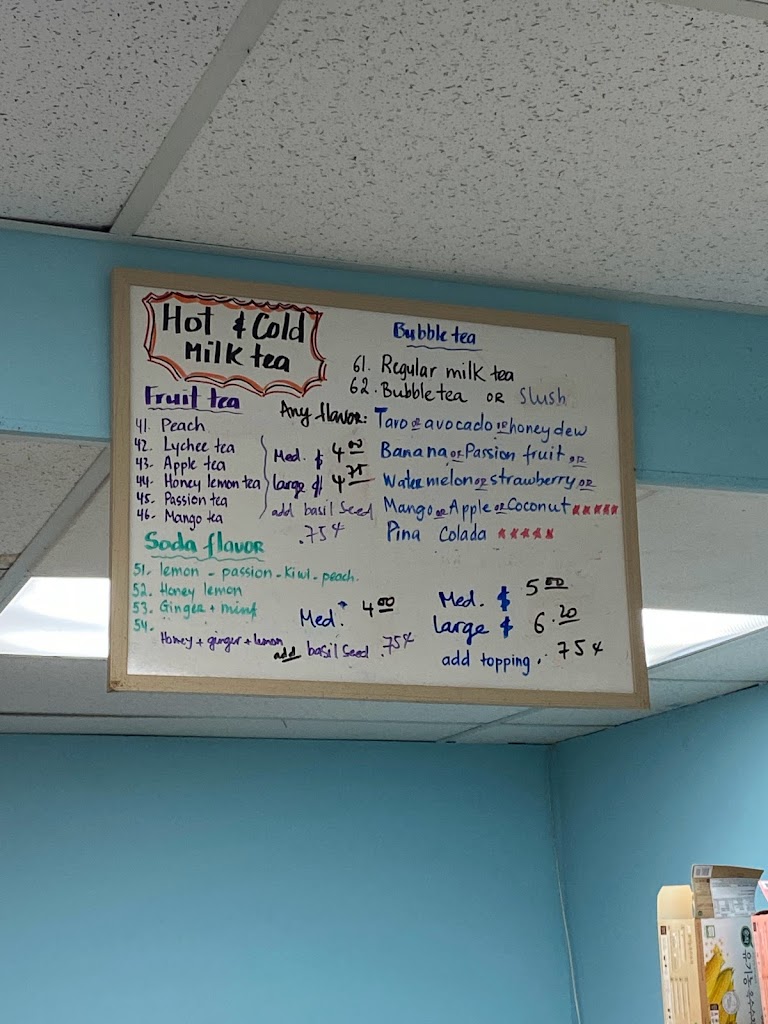 Hot & Cold
Milk tea
Fruit tea
41. Peach
42. Lychee tea
43. Apple tea
44. Honey lemon tea
45. Passion tea
46. Mango tea
Med. $ 4.00
large $ 4.75
add basil seed
.75¢
Soda flavor
51. lemon - passion - kiwi - peach.
52. Honey lemon
53. Ginger + mint
54.
Honey + ginger + lemon
Med. 4.00
add basil seed .75¢
Bubble tea
61. Regular milk tea
62. Bubble tea OR Slush
Any flavor: Taro or avocado or honeydew
Banana or Passion fruit or
Watermelon or strawberry or
Mango or Apple or Coconut
Pina Colada
Med. $ 5.00
large $ 6.20
add topping . 75¢
유기농 옥수수